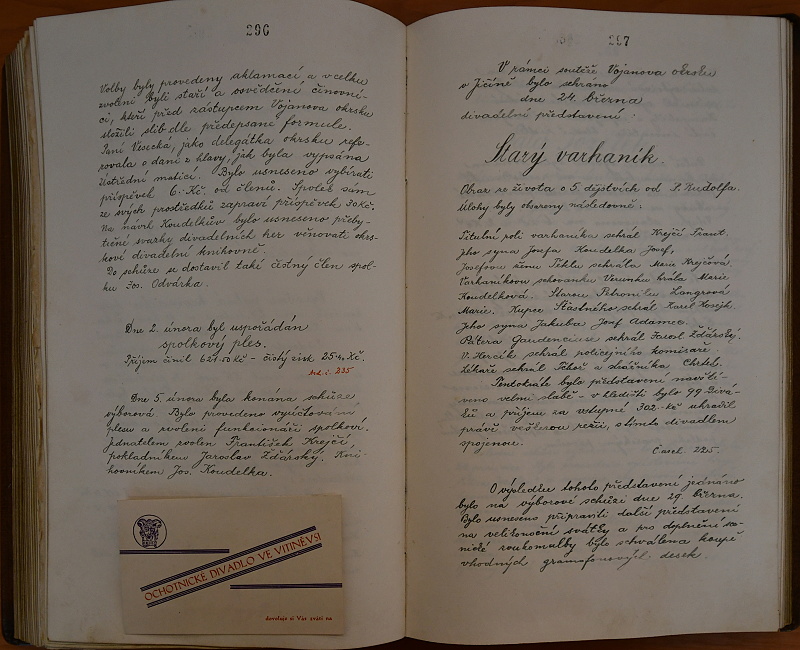 296
Volby byly provedeny aklamací a vcelku
zvoleni byli staří a osvědčení činovní-
ci, kteří před zástupcem Vojanova okrsku
složili slib dle předepsané formule.
Paní Vesecká, jako delegátka okrsku refe-
rovala o dani z hlavy, jak byla vypsána
ústřední maticí. Bylo usneseno vybírati
příspěvek 6.-Kč. od členů. Spolek sám
ze svých prostředků zapraví příspěvek 30Kč.
Na návrh Koudelkův bylo usneseno přeby-
tečné svazky divadelních her věnovati okrs-
kové divadelní knihovně.
Po schůzi se dostavil také čestný člen spol-
ku Jos. Odvárka.
Dne 2. února byl uspořádán
spolkový ples.
Příjem činil 627.50 Kč - čistý zisk 25.- Kč.
inv. č. 235
Dne 5. února byla konána schůze
výborová. Bylo provedeno vyúčtování
plesu a zvoleni funkcionáři spolkoví.
Jednatelem zvolen František Krejčí,
pokladníkem Jaroslav Žďárský. Kni-
hovníkem Jos. Koudelka.
OCHOTNICKÉ DIVADLO VE VITINĚVSI
dovoluje si Vás zváti na
297
V rámci soutěže Vojanova okrsku
v Jičíně bylo sehráno
dne 24. března
divadelní představení
Starý varhaník.
Obraz ze života o 5. dějstvích od L. Rudolfa.
Úlohy byly obsazeny následovně:
Titulní roli varhaníka sehrál Krejčí Frant.
Jeho syna Josefa Koudelka Josef,
Josefovu ženu Teklu sehrála Marie Krejčová
Varhaníkovu schovanku Verunku hrála Marie
Koudelková. Starou Petronilu Langrová
Marie. Kupce Šťastného sehrál Karel Kosejk
Jeho syna Jakuba Josef Adamec.
Pátera Gaudenciuse sehrál Jarosl. Žďárský.
V. Hercík sehrál policejního komisaře.
Lékaře sehrál Tchoř a strážníka Chrtek.
Tentokráte bylo představení navští-
veno velmi slabě - v hledišti bylo 99 divá-
ků a příjem za vstupné 302.-Kč uhradil
právě veškerou režii, s tímto divadlem
spojenou.
225.
O výsledku tohoto představení jednáno
bylo na výborové schůzi dne 29. března.
Bylo usneseno připraviti další představení
na velikonoční svátky a pro doplnění sce-
nické zvukomalby bylo schválena koupě
vhodných gramofonových desek.